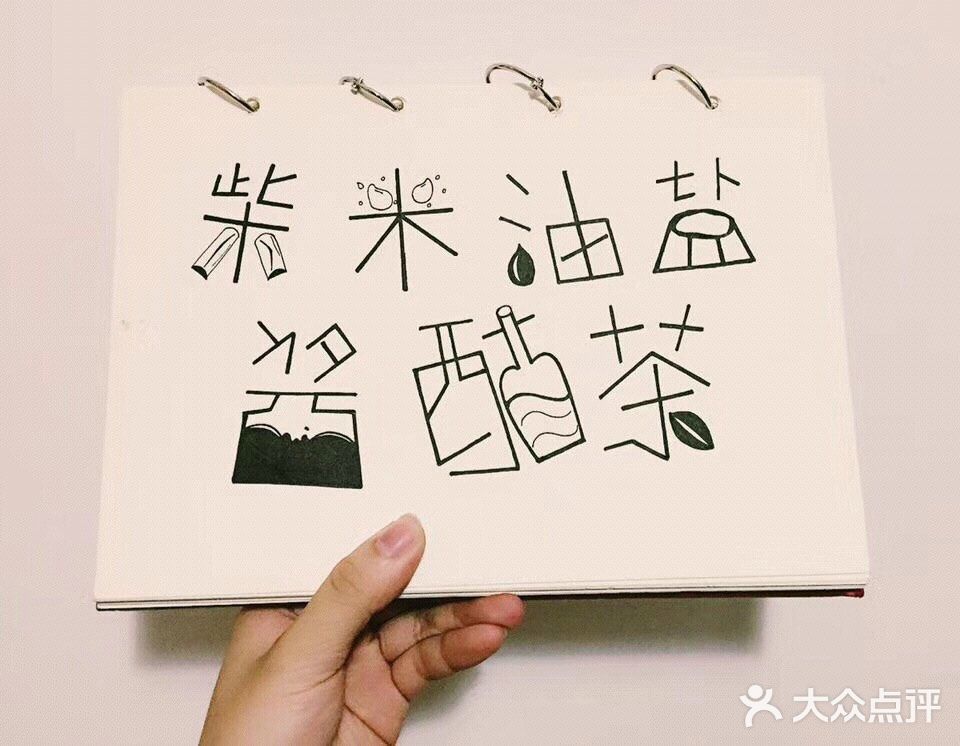 柴米油盐
酱醋茶
大众点评